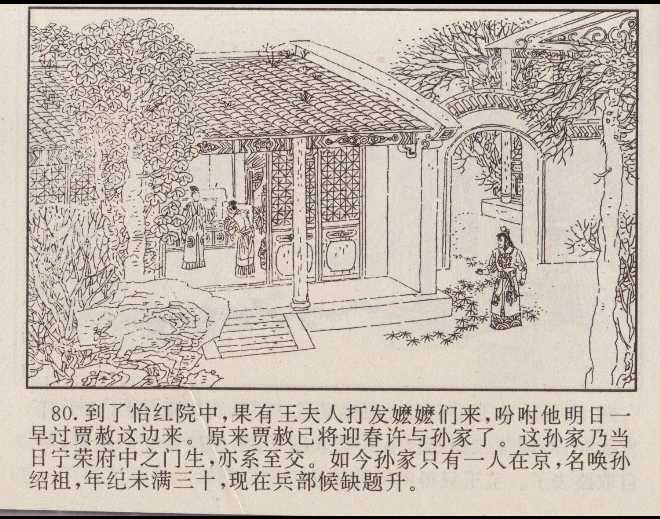 80. 到了怡红院中，果有王夫人打发嬷嬷们来，吩咐他明日一
早过贾赦这边来。原来贾赦已将迎春许与孙家了。这孙家乃当
日宁荣府中之门生，亦系至交。如今孙家只有一人在京，名唤孙
绍祖，年纪未满三十，现在兵部候缺题升。